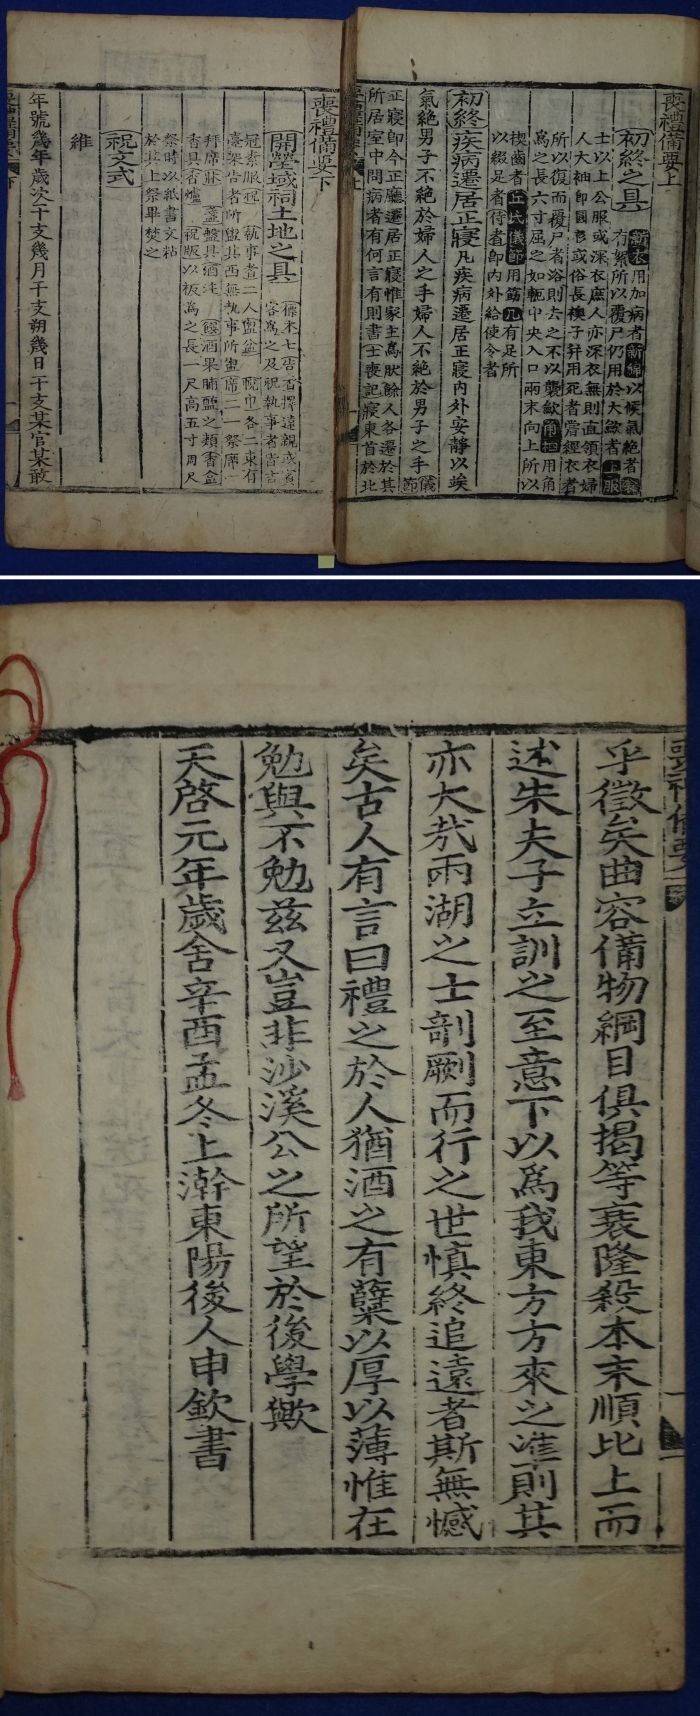 喪禮備要上
初終之具
新衣用加病者新綿以候氣絶者
有絮所以覆尸仍用於大斂者上服
士以上公服或深衣庶人亦深衣無則直領衣婦
人大袖即圓衫或俗長襖子幷用死者嘗經衣者
所以復而覆尸者浴則去之不以襲斂角柶用角
爲之長六寸屈之如軛中央入口兩末向上所以
楔齒者丘氏儀節用筯几有足所
以綴足者侍者即内外給使令者
初終疾病遷居正寢凡疾病遷居正寢内外安靜以竢
氣絶男子不絶於婦人之手婦人不絶於男子之手儀節
正寢即今正廳遷居正寢惟家主爲肰餘人各遷於其
所居室中問病者有何言有則書士喪記寢東首於北
喪禮備要下
開塋域祠土地之具
客爲之及祝執事者皆吉
冠素服 執事者二人盥盆帨巾各二東有
臺架告者所盥其西無執事所盥席二一祭席一
拜席牀 盞盤具酒注 饌酒果脯醢之類香盒
香具香爐 祝版以板爲之長一尺高五寸周尺
祭時以紙書文粘
於其上祭畢焚之
祝文式
維
年號幾年歲次干支幾月干支朔幾日干支某官某敢
乎徵矣曲容備物綱目俱揭等衰隆殺本末順比上而
述朱夫子立訓之至意下以爲我東方方來之準則其
亦大哉兩湖之士剞劂而行之世愼終追遠者斯無憾
矣古人有言曰禮之於人猶酒之有糵以厚以薄惟在
勉與不勉茲又豈非沙溪公之所望於後學歟
天啓元年歲舍辛酉孟冬上澣東陽後人申欽書